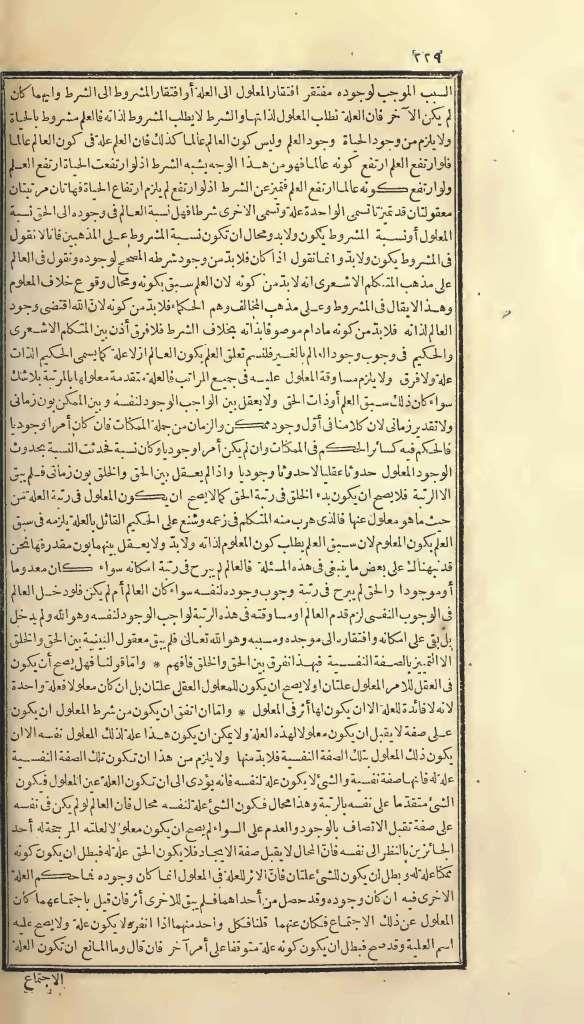 ٢٢٩
السبب الموجب لوجوده مفتقر افتقار المعلول الى العلة أو افتقار المشروط الى الشرط وأيهما كان
لم يكن الآخر فان العلة تطلب المعلول لذاتها والشرط لا يطلب المشروط لذاته فالعلم مشروط بالحياة
ولا يلزم من وجود الحياة وجود العلم وليس كون العالم عالما كذلك فان العلم علة فى كون العالم عالما
فلو ارتفع العلم ارتفع كونه عالما فهو من هذا الوجه يشبه الشرط اذ لو ارتفعت الحياة ارتفع العلم
ولو ارتفع كونه عالما ارتفع العلم فتميز عن الشرط اذ لو ارتفع لم يلزم ارتفاع الحياة فهاتان مرتبتان
معقولتان قد تميزتا تسمى الواحدة علة وتسمى الاخرى شرطا فهل نسبة العالم فى وجوده الى الحق نسبة
المعلول أو نسبة المشروط يكون ولابد ومحال ان تكون نسبة المشروط على المذهبين فانا لا نقول
فى المشروط يكون ولابد وانما نقول اذا كان فلابد من وجود شرطه المصحح لوجوده ونقول فى العالم
على مذهب المتكلم الاشعرى انه لابد من كونه لان العلم سبق بكونه ومحال وقوع خلاف المعلوم
وهذا لا يقال فى المشروط وعلى مذهب المخالف وهم الحكماء فلابد من كونه لان الله اقتضى وجود
العالم لذاته فلابد من كونه مادام موصوفا بذاته بخلاف الشرط فلا فرق أذن بين المتكلم الاشعرى
والحكيم فى وجوب وجود العالم بالغير فلنسم تعلق العلم بكون العالم ازلا علة كما يسمى الحكيم الذات
علة ولا فرق ولا يلزم مساوقة المعلول علته فى جميع المراتب فالعلة متقدمة معلولها بالمرتبة بلا شك
سواء كان ذلك سبق العلم أو ذات الحق ولا يعقل بين الواجب الوجود لنفسه وبين الممكن بون زمانى
ولا تقدير زمانى لان كلامنا فى أول وجود ممكن والزمان من جملة الممكنات فان كان أمرا وجوديا
فالحكم فيه كسائر الحكم فى الممكنات وان لم يكن أمرا وجوديا وكان نسبة فحدثت النسبة بحدوث
الوجود المعلول حدوثا عقليا لا حدوثا وجوديا واذا لم يعقل بين الحق والخلق بون زمانى فلم يبق
الا الرتبة فلا يصح ان يكون بدء الخلق فى رتبة الحق كما لا يصح ان يكون المعلول فى رتبة العلة من
حيث ما هو معلول عنها فالذى هرب منه المتكلم فى زعمه وشنع على الحكيم القائل بالعلة يلزمه فى سبق
العلم بكون المعلوم لان سبق العلم يطلب كون المعلوم لذاته ولابد ولا يعقل بينهما بون مقدر فها نحن
قد نبهناك على بعض ما ينبغى فى هذه المسئلة فالعالم لم يبرح فى رتبة امكانه سواء كان معدوما
أو موجودا والحق لم يبرح فى رتبة وجوب وجوده لنفسه سواء كان العالم أم لم يكن فلو دخل العالم
فى الوجوب النفسى لزم قدم العالم او مساوقته فى هذه الرتبة لواجب الوجود لنفسه وهو الله ولم يدخل
بل بقى على امكانه وافتقاره الى موجده ومسببه وهو الله تعالى فلم يبق معقول البينية بين الحق والخلق
الا التمييز بالصفة النفسية فبهذا نفرق بين الحق والخلق فافهم * واما قولنا فهل يصح أن يكون
فى العقل للامر المعلول علتان او لا يصح ان يكون للمعلول العقلى علتان بل ان كان معلولا فعلة واحدة
لانه لا فائدة للعلة الا ان يكون لها أثر فى المعلول * واما ان اتفق ان يكون من شرط المعلول ان يكون
على صفة لا يقبل ان يكون معلولا لهذه العلة ولا يمكن ان يكون هذا علة لذلك المعلول نفسه الا ان
يكون ذلك المعلول بتلك الصفة النفسية فلابد منها ولا يلزم من هذا ان تكون تلك الصفة النفسية
علة له فانها صفة نفسية والشئ لا يكون علة لنفسه فانه يؤدى الى ان تكون العلة عين المعلول فيكون
الشئ متقدما على نفسه بالرتبة وهذا محال فكون الشئ علة لنفسه محال فان العالم لو لم يكن فى نفسه
على صفة تقبل الاتصاف بالوجود والعدم على السواء لم يصح ان يكون معلولا لعلته المرجحة له أحد
الجائزين بالنظر الى نفسه فان المحال لا يقبل صفة الايجاد فلا يكون الحق علة له فبطل ان يكون كونه
ممكنا علة له وبطل ان يكون للشئ علتان فان الاثر للعلة فى المعلول انما كان وجوده فما حكم العلة
الاخرى فيه ان كان وجوده وقد حصل من أحداهما فلم يبق للاخرى أثر فان قيل باجتماعهما كان
المعلول عن ذلك الاجتماع فكان عنهما قلنا فكل واحد منهما اذا انفرد لا يكون علة ولا يصح عليه
اسم العلية وقد صح فبطل ان يكون كونه علة متوقفا على أمر آخر فان قال وما المانع ان تكون العلة
الاجتماع